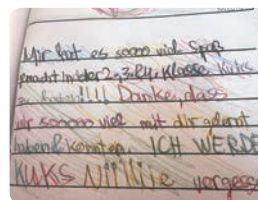 Mir hat es soooo viel Spaß
gemacht in der 2. + 3. & 4. Klasse Kuks
zu haben!!!! Danke, dass
wir sooooo viel mit dir gelernt
haben & konnten. ICH WERDE
KUKS Niiiiie vergess